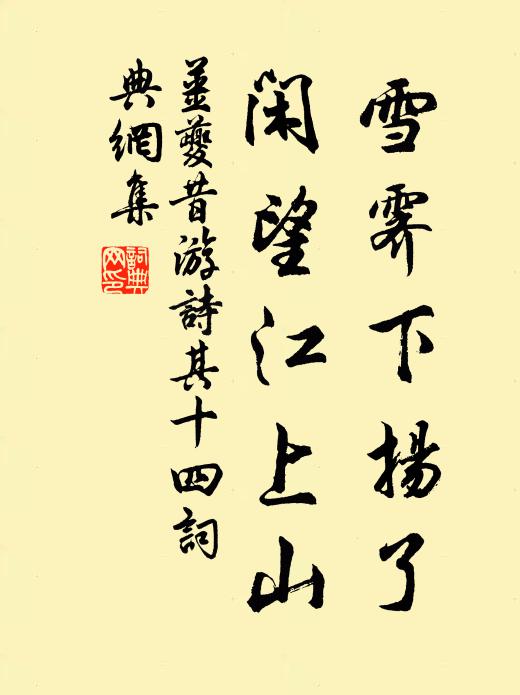 雪霽下揚了
閑望江上山
姜夔昔游詩其十四詞
典網集
詞典
網印